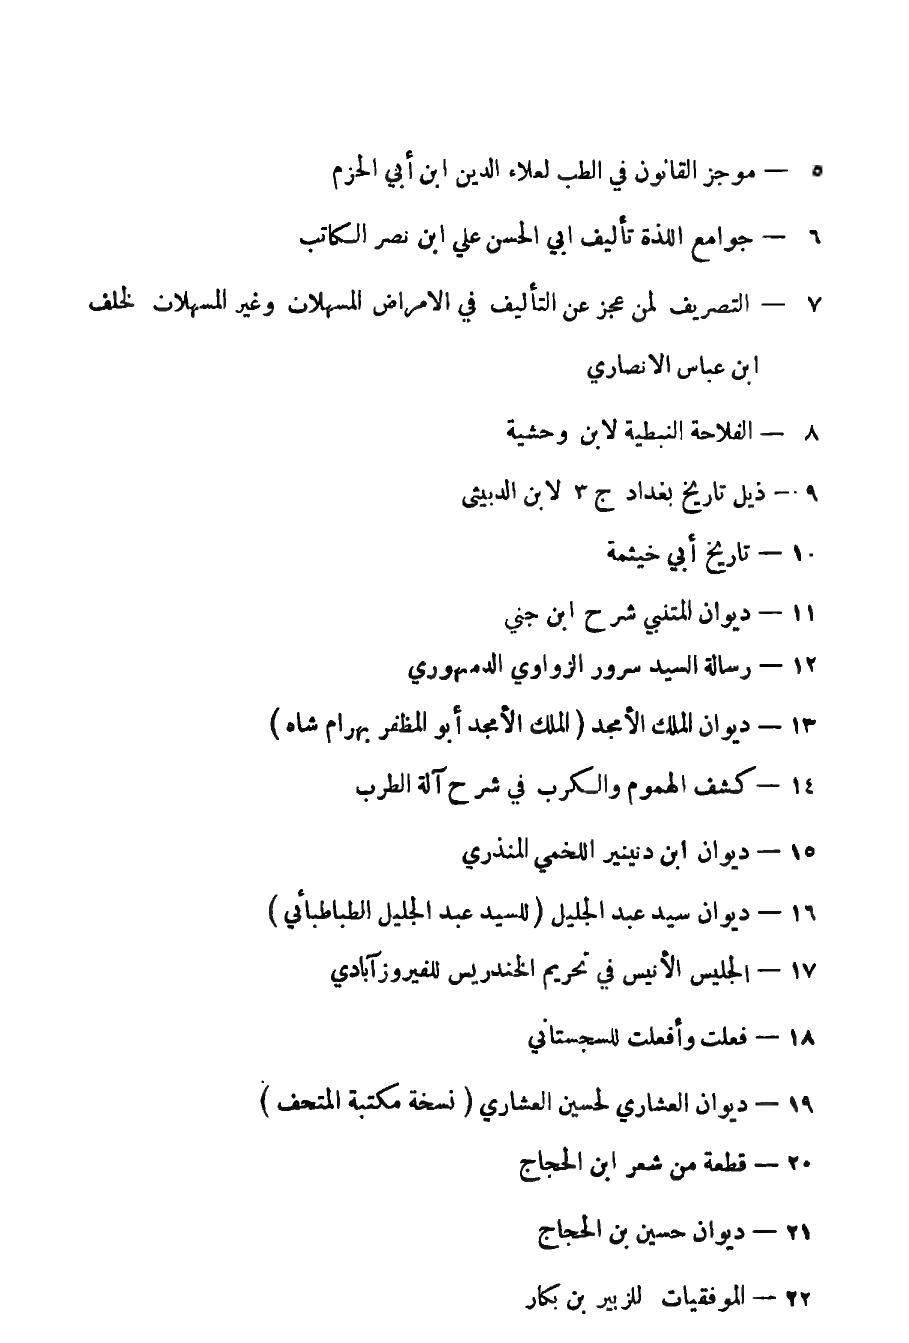 ٥ — موجز القانون في الطب لعلاء الدين ابن أبي الحزم
٦ — جوامع اللذة تأليف ابي الحسن علي ابن نصر الكاتب
٧ — التصريف لمن عجز عن التأليف في الامراض المسهلان وغير المسهلان لخلف
ابن عباس الانصاري
٨ — الفلاحة النبطية لابن وحشية
٩ — ذيل تاريخ بغداد ج ٣ لابن الدبيثى
١٠ — تاريخ أبي خيثمة
١١ — ديوان المتنبي شرح ابن جني
١٢ — رسالة السيد سرور الزواوي الدمنهوري
١٣ — ديوان الملك الأمجد ( الملك الأمجد أبو المظفر بهرام شاه )
١٤ — كشف الهموم والكرب في شرح آلة الطرب
١٥ — ديوان ابن دنينير اللخمي المنذري
١٦ — ديوان سيد عبد الجليل ( للسيد عبد الجليل الطباطبأئي )
١٧ — الجليس الأنيس في تحريم الخندريس للفيروزآبادي
١٨ — فعلت وأفعلت للسجستاني
١٩ — ديوان العشاري لحسين العشاري ( نسخة مكتبة المتحف )
٢٠ — قطعة من شعر ابن الحجاج
٢١ — ديوان حسين بن الحجاج
٢٢ — الموفقيات للزبير بن بكار